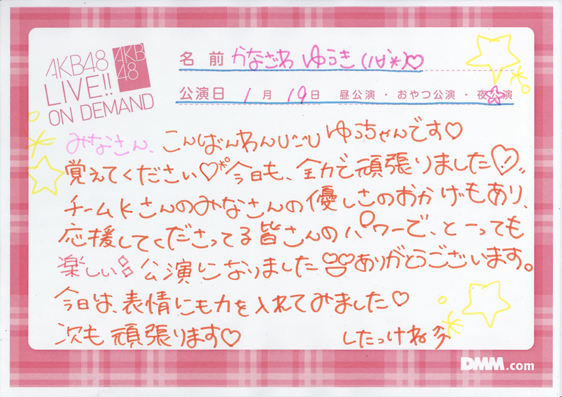 AKB48
LIVE!!
ON DEMAND
AKB
48
名前 かなざわ ゆうき (ﾘ∂'*)♡
公演日 1月19日 昼公演・おやつ公演・夜公演
みなさん、こんばんわんU^ェ^U ゆっちゃんです♡
覚えてください♡* 今日も、全力で頑張りました♡
チームKさんのみなさんの優しさのおかげもあり、
応援してくださってる皆さんのパワーで、とーっても
楽しい公演になりました♡♡ありがとうございます。
今日は、表情にも力を入れてみました♡
次も頑張ります♡ したっけね
DMM.com